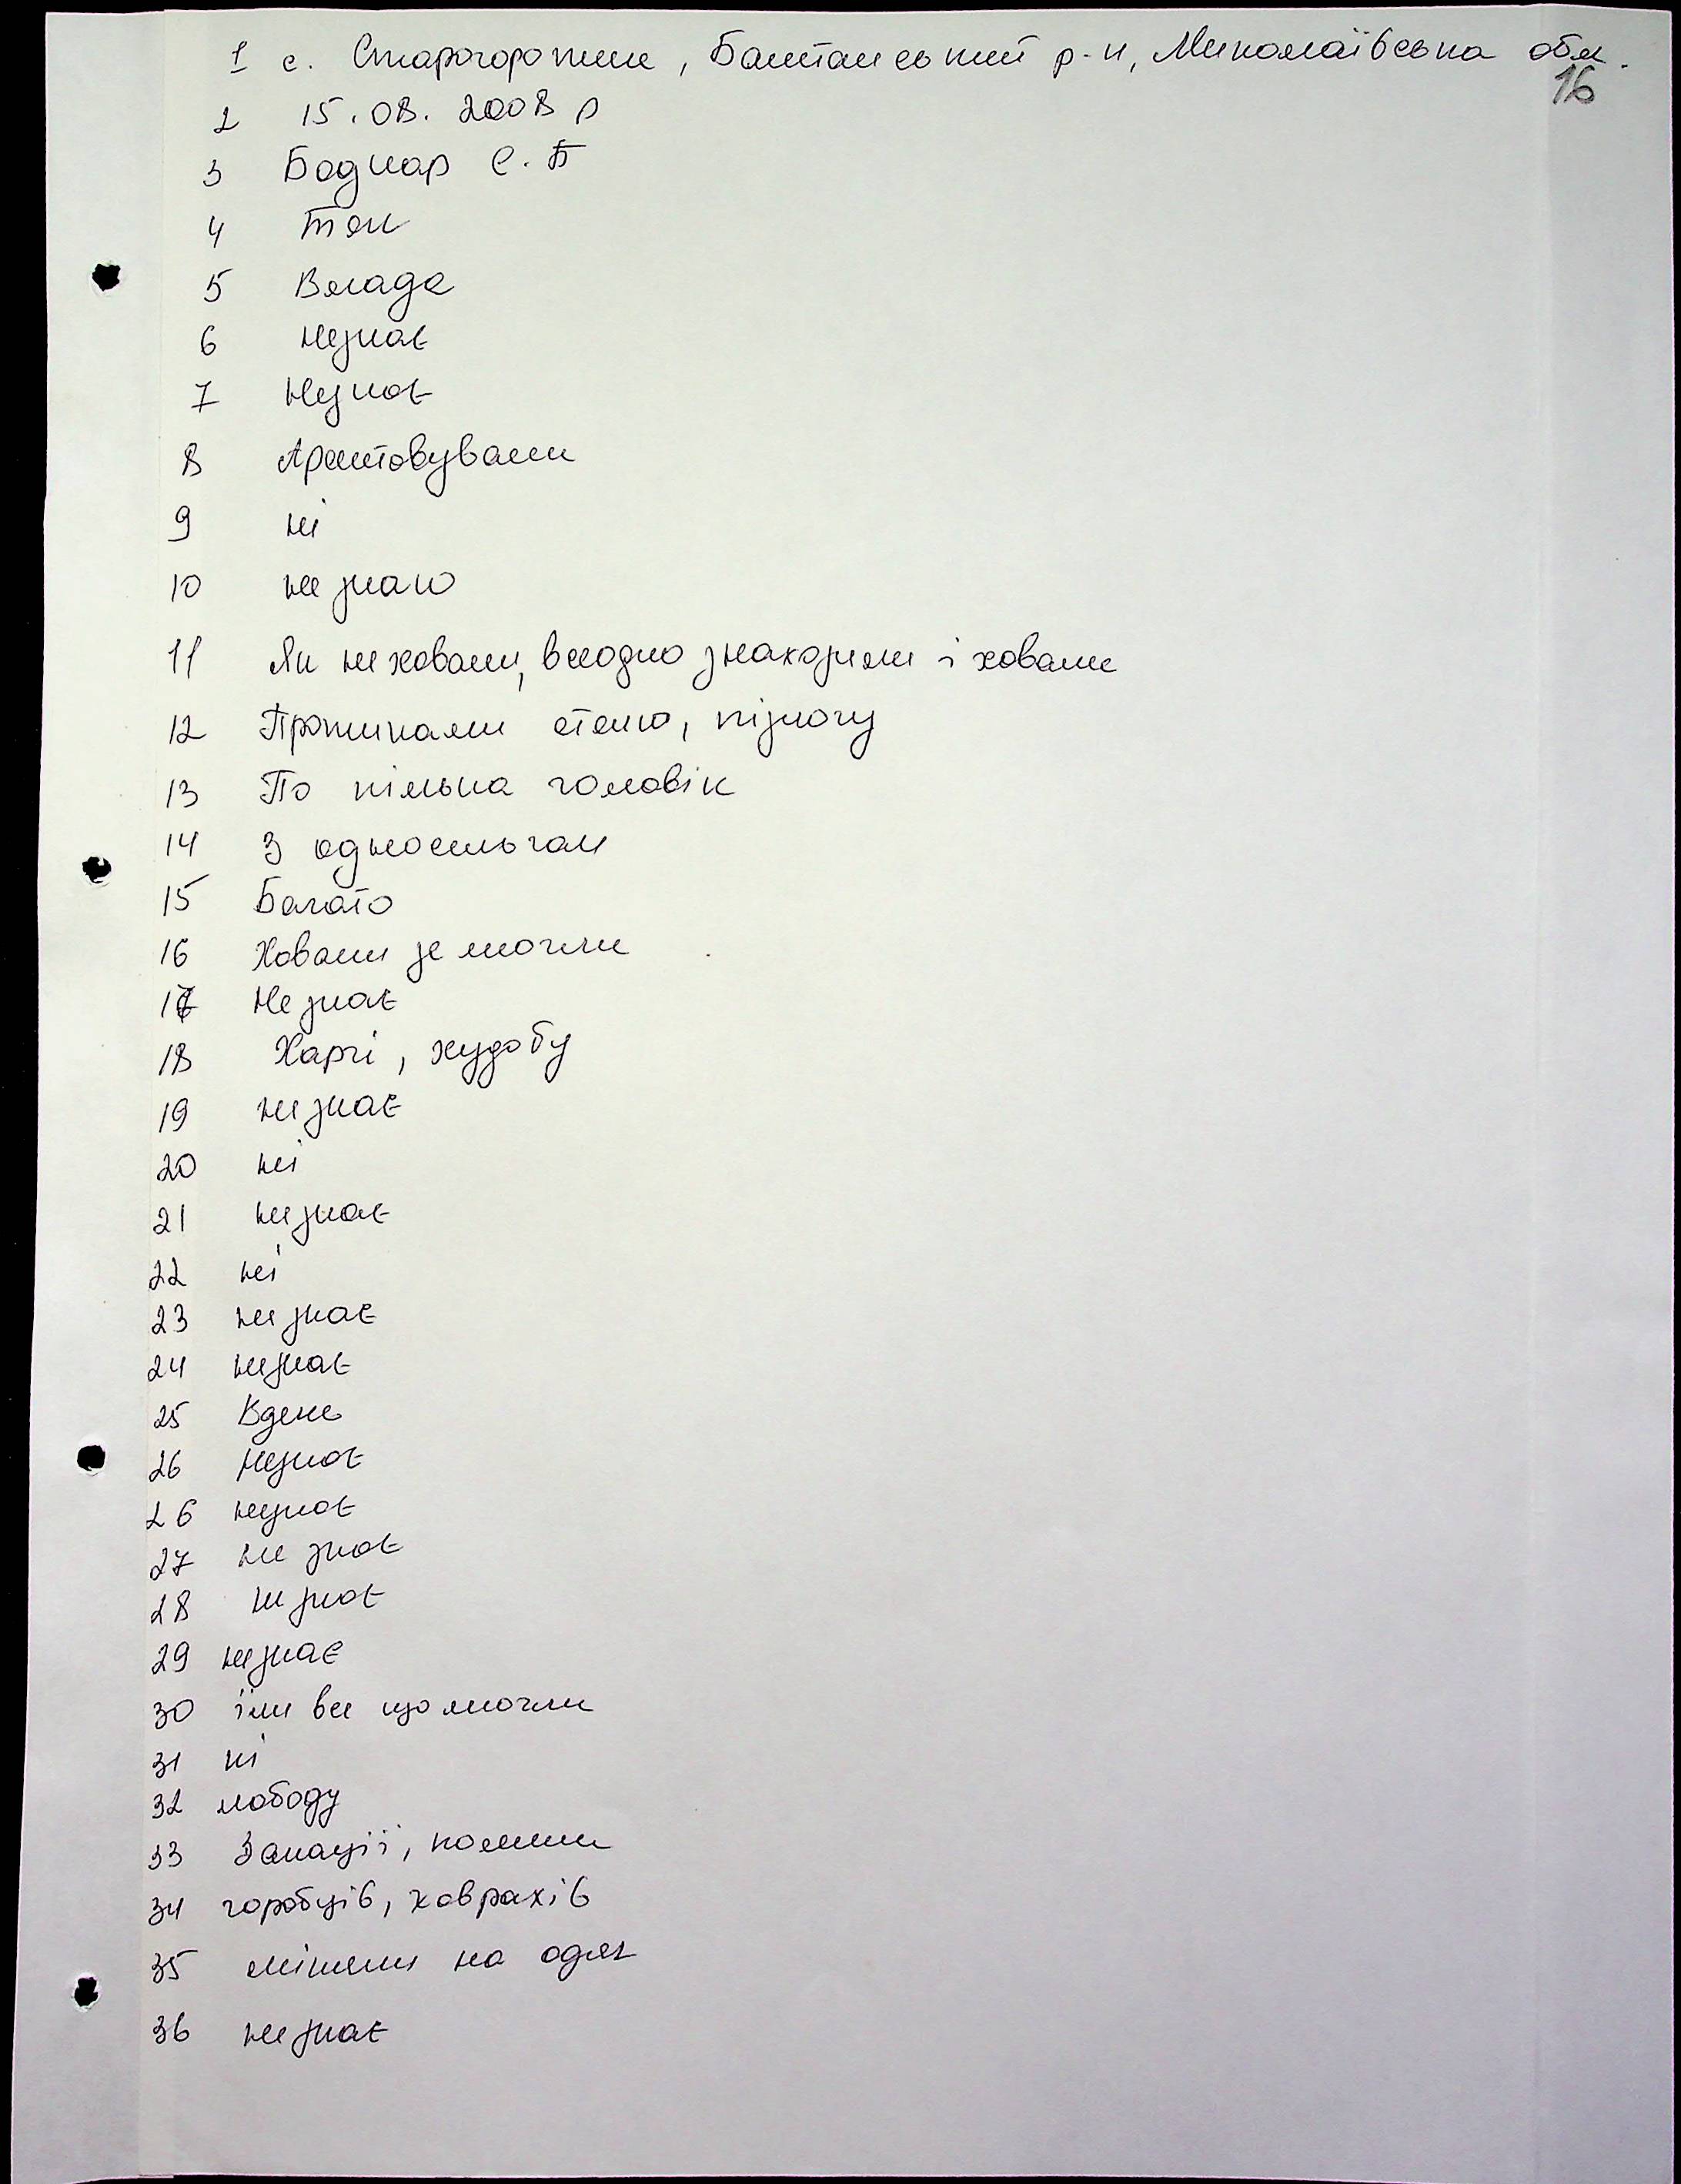 1 с. Старогорожине, Баштанський р-н, Миколаївська обл.
16
2 15.08.2008 р
3 Боднар Є.Б
4 Так
5 Влада
6 незнає
7 Незнає
8 Арештовували
9 ні
10 не знаю
11 Як не ховали, всеодно знаходили і ховали
12 Протикали стелю, підлогу
13 По кілька чоловік
14 З односельчан
15 Багато
16 Ховали де могли
17 Не знає
18 Харчі, худобу
19 не знає
20 ні
21 незнає
22 ні
23 не знає
24 незнає
25 Вдене
26 Незнає
26 незнає
27 не знає
28 не знає
29 незнає
30 їли все що могли
31 ні
32 лободу
33 Значації, колоски
34 горобців, ховрахів
35 міняли на одяг
36 не знає